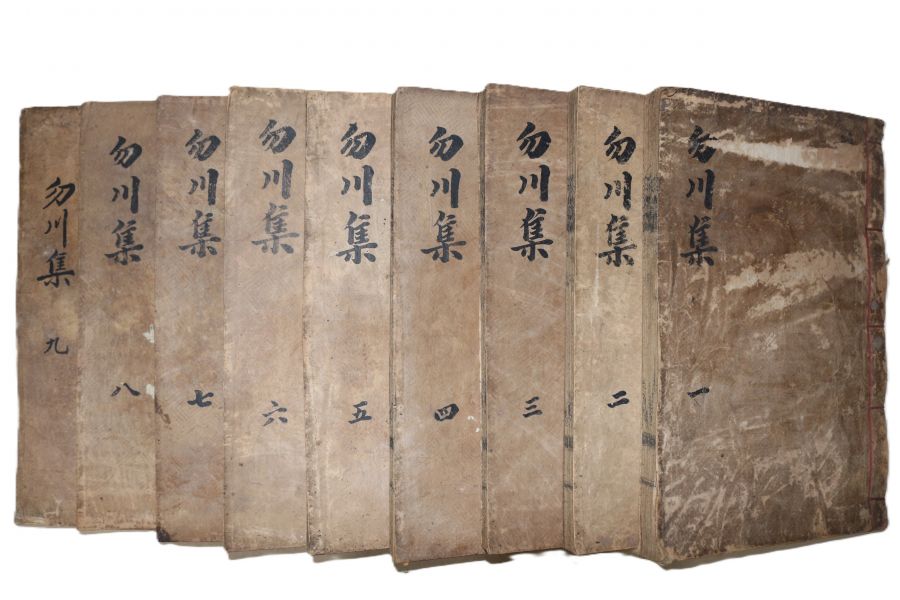 勿川集 一
勿川集 二
勿川集 三
勿川集 四
勿川集 五
勿川集 六
勿川集 七
勿川集 八
勿川集 九